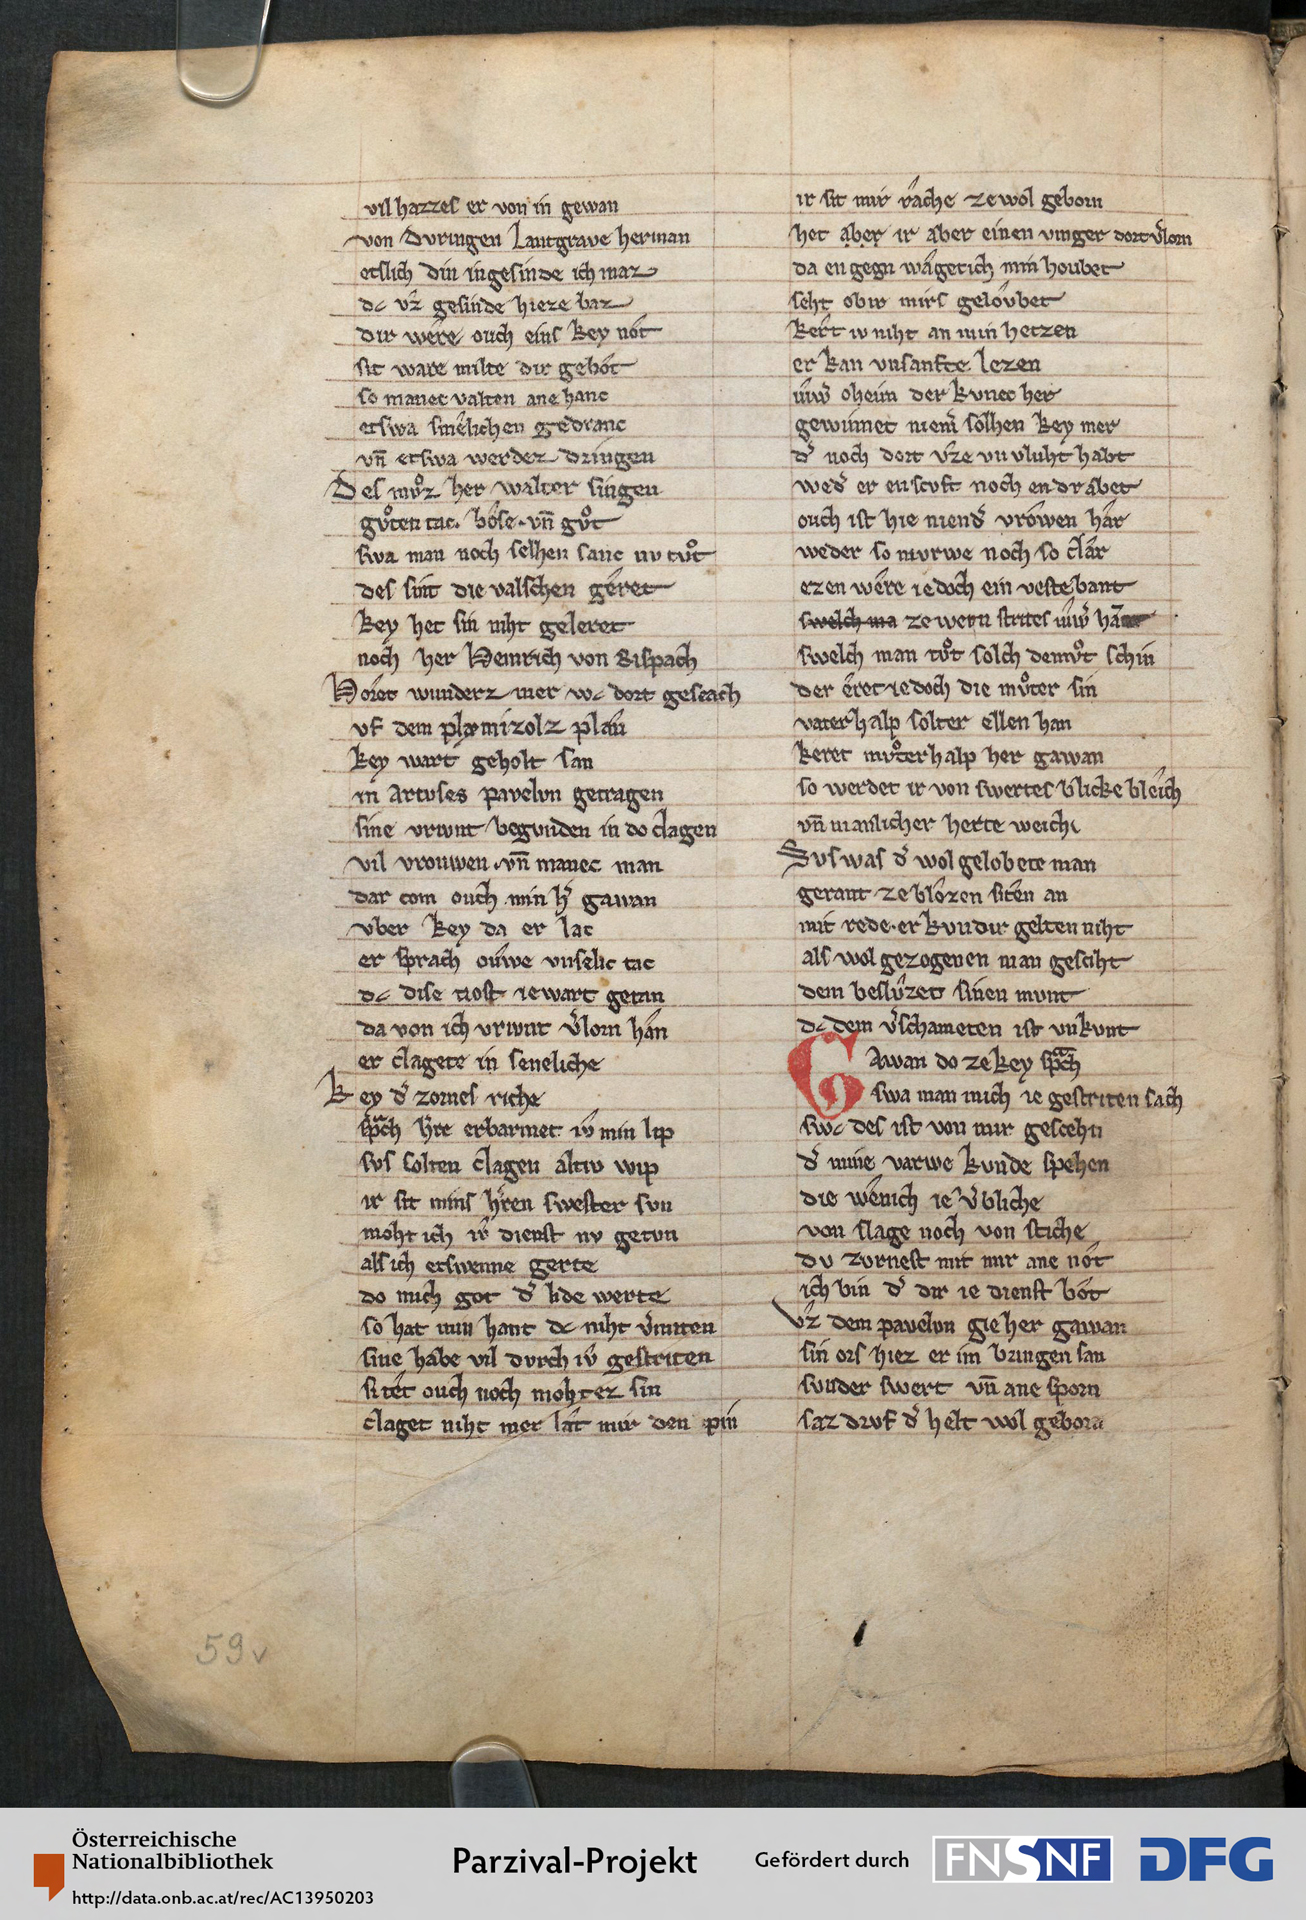 vil hazzes er von in gewan
von Dvringen Lantgrave herman
etslich din ingesinde ich maz
dc vz gesinde hieze baz
dir were ouch eins key not
sit ware milte dir gebot
so manec valten ane hanc
etswa smelichen gedranc
vn̄ etswa werdez dringen
Des mvͦz her walter singen
gvͦten tac. bose. vn̄ gvͦt
swa man noch selhen sanc nv tvͦt
des sint die valschen geret
key het sin niht geleret
noch her Heinrich von Rispach
Horet wunderz mer wc dort gescach
vf dem plæmizolz plan
key wart geholt san
in Artvses pavelvn getragen
sine vrivnt begvnden in do clagen
vil vrouwen. vn̄ manec man
dar com ouch min h̓ gawan
vber key da er lac
er sprach ouwe vnselic tac
dc dise tiost ie wart getan
da von ich vrivnt v̓lorn han
er clagete in seneliche
key d̓ zornes riche
spͣch h̓re erbarmet iv̓ min lip
svs solten clagen altiv wip
ir sit mins h̓ren swester svn
moht ich iv̓ dienst nv getvn
als ich etswenne gerte
do mich got d̓ lide werte
so hat min hant dc niht v̓miten
sine habe vil dvrch iv̓ gestriten
si tet ouch noch moht ez sin
claget niht mer lat mir den pin
ir sit mir rache ze wol geborn
het aber ir aber einen vinger dort v̓lorn
da engegn waget ich min houbet
seht ob ir mirs geloubet
kert iv niht an min hetzen
er kan vnsanfte lezen
iv̓w̓ oheim der kvnec her
gewinnet niem̓ solhen key mer
d̓ noch dort vze vnvluht habt
wed̓ er enscvft noch endrabet
ouch ist hie niend̓ vrowen har
weder so mvrwe noch so clar
ezen were iedoch ein veste bant
swelch ma ze wern strites iv̓w̓ hant
swelch man tvͦt solch demvͦt schin
der eret iedoch die mvͦter sin
vaterhalp solter ellen han
keret mvͦterhalp her gawan
so werdet ir von swertes blicke bleich
vn̄ manlicher herte weich
Svs was d̓ wol gelobete man
gerant ze blozen siten an
mit rede. er kvndir gelten niht
als wol gezogenen man gesciht
dem beslvzet sinen mvnt
dc dem v̓schameten ist vnkvnt
Gawan do ze key spͣch
swa man mich ie gestriten sach
swc des ist von mir gescehn
d̓ mine varwe kvnde spehen
die wenich ie v̓bliche
von slage noch von stiche
dv zvrnest mit mir ane not
ich bin d̓ dir ie dienst bot
Vz dem pavelvn gie her gawan
sin ors hiez er im bringen san
svnder swert vn̄ ane sporn
saz drvf d̓ helt wol geborn
59v
Österreichische
Nationalbibliothek
http://data.onb.ac.at/rec/AC13950203
Parzival-Projekt
Gefördert durch
FNSNF
DFG